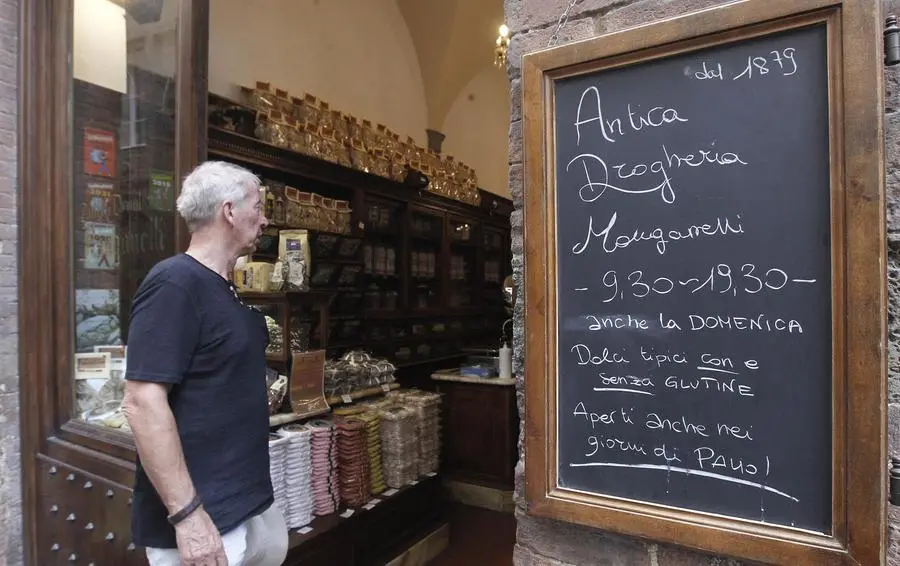 dal 1879
Antica
Drogheria
Manganelli
- 9,30~19,30 -
anche la DOMENICA
Dolci tipici con e
senza GLUTINE
Aperti anche nei
giorni di PALIO!